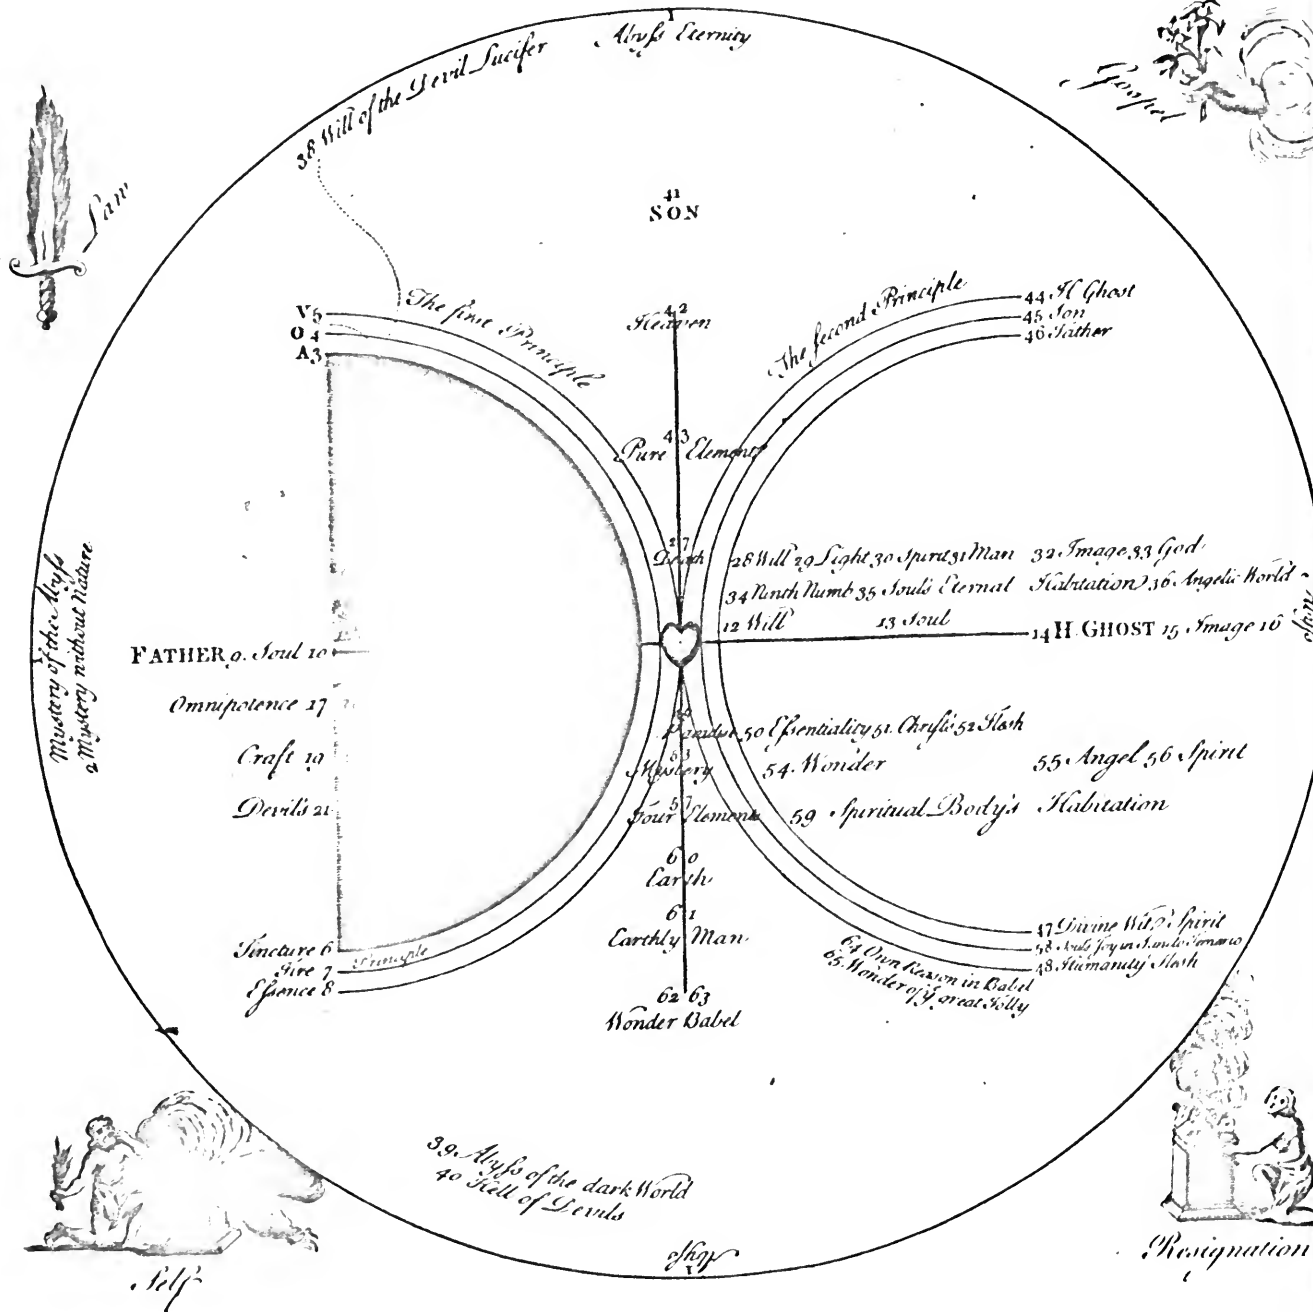 Abyſs Eternity
38 Will of the Devil Lucifer
Gospel
Law
41
SON
V 5
O 4
A 3
The first Principle
42
Heaven
The second Principle
44 H Ghost
45 Son
46 Father
43
Pure Element
27
Death
28 Will 29 Light 30 Spirit 31 Man 32 Image 33 God
34 Ninth Numb 35 Soul's Eternal Habitation 36 Angelic World
12 Will 13 Soul
14 H. GHOST 15 Image 16
Mystery of the Abyſs
2 Mystery without Nature
FATHER 9. Soul 10
Omnipotence 17
Craft 19
Devil's 21
Paradise 50 Eſsentiality 51. Christ's 52 Flesh
53
Mystery 54. Wonder 55 Angel 56 Spirit
57
Four Element 59 Spiritual Body's Habitation
60
Earth
61
Earthly Man
62 63
Wonder Babel
Tincture 6
Fire 7
Eſsence 8
Principle
47 Divine Wit Spirit
58 Souls Joy in
48 Humanity Flesh
64 Own Reason in Babel
65 Wonder of yᵉ great Folly
39 Abyſs of the dark World
40 Hell of Devils
Self
Resignation